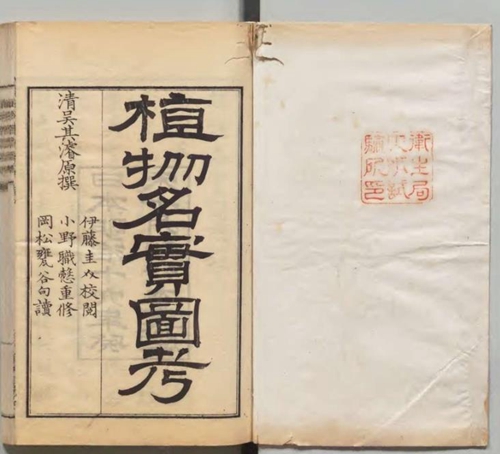 衛生局
試
驗所印
植物名實圖考
清吳其濬原撰
伊藤圭介校閱
小野職愨重修
岡松甕谷句讀